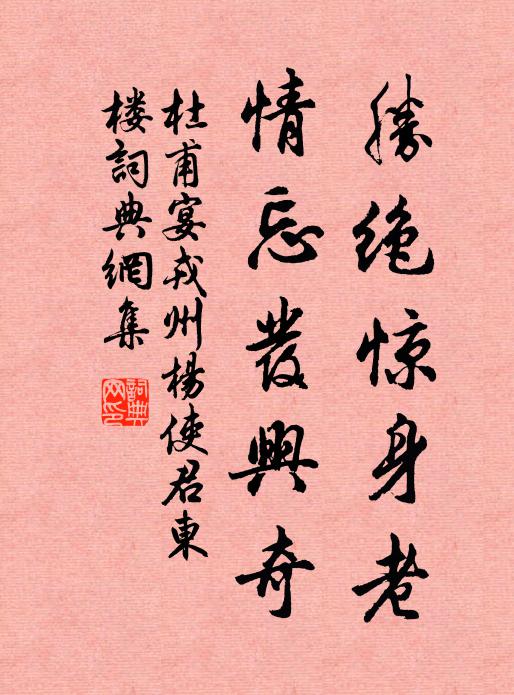 勝绝惊身老
情忘發興奇
杜甫宴戎州楊使君東
楼詞典網集
詞典
网印